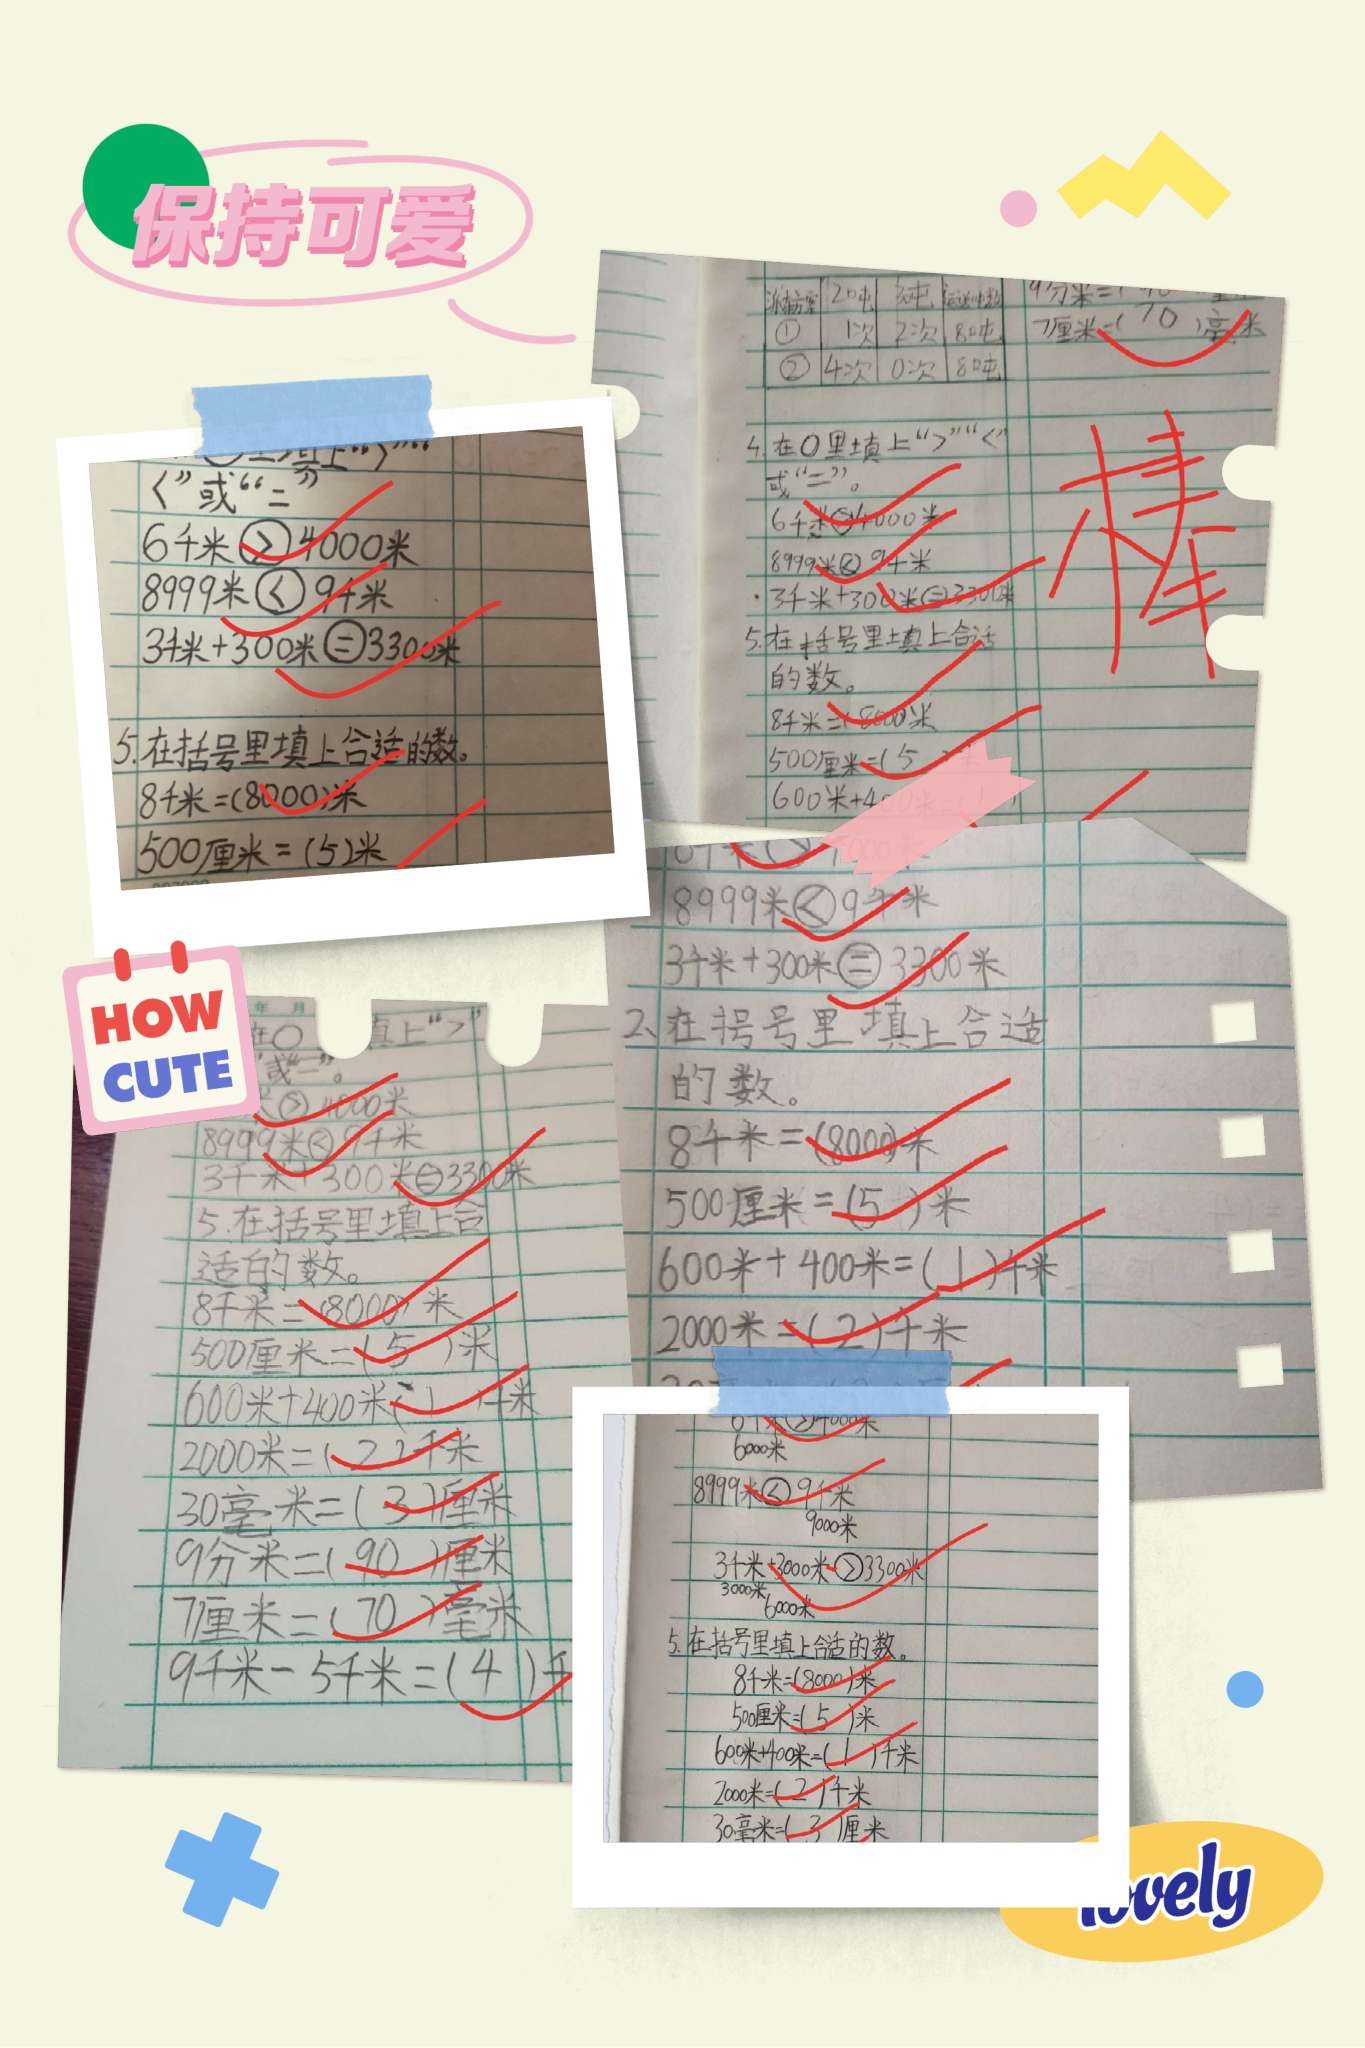 保持可爱
〈”或“=”
6千米>4000米
8999米<9千米
3千米+300米=3300米
5.在括号里填上合适的数。
8千米=(8000)米
500厘米=(5)米
20吨
① 1次 2次 80吨
② 4次 0次 80吨
7厘米=(70)毫米
4.在O里填上“>”“<”
或“=”。
6千米>4000米
8999米<9千米
3千米+300米=3300米
5.在括号里填上合适
的数。
8千米=(8000)米
500厘米=(5
600米+400米=(1)
棒
8999米<9千米
3千米+300米=3300米
2、在括号里填上合适
的数。
8千米=(8000)米
500厘米=(5)米
600米+400米=(1)千米
2000米=(2)千米
HOW
CUTE
年 月
在O 填上“>”
”或“=”。
>4000米
8999米<9千米
3千米+300米=3300米
5.在括号里填上合
适的数。
8千米=(8000)米
500厘米=(5)米
600米+400米(1 千米
2000米=(2)千米
30毫米=(3)厘米
9分米=(90)厘米
7厘米=(70)毫米
9千米-5千米=(4)千
6千米>4000米
6000米
8999米<9千米
9000米
3千米+3000米>3300米
3000米
6000米
5.在括号里填上合适的数。
8千米=(8000)米
500厘米=(5)米
600米+400米=(1)千米
2000米=(2)千米
30毫米=(3)厘米
lovely